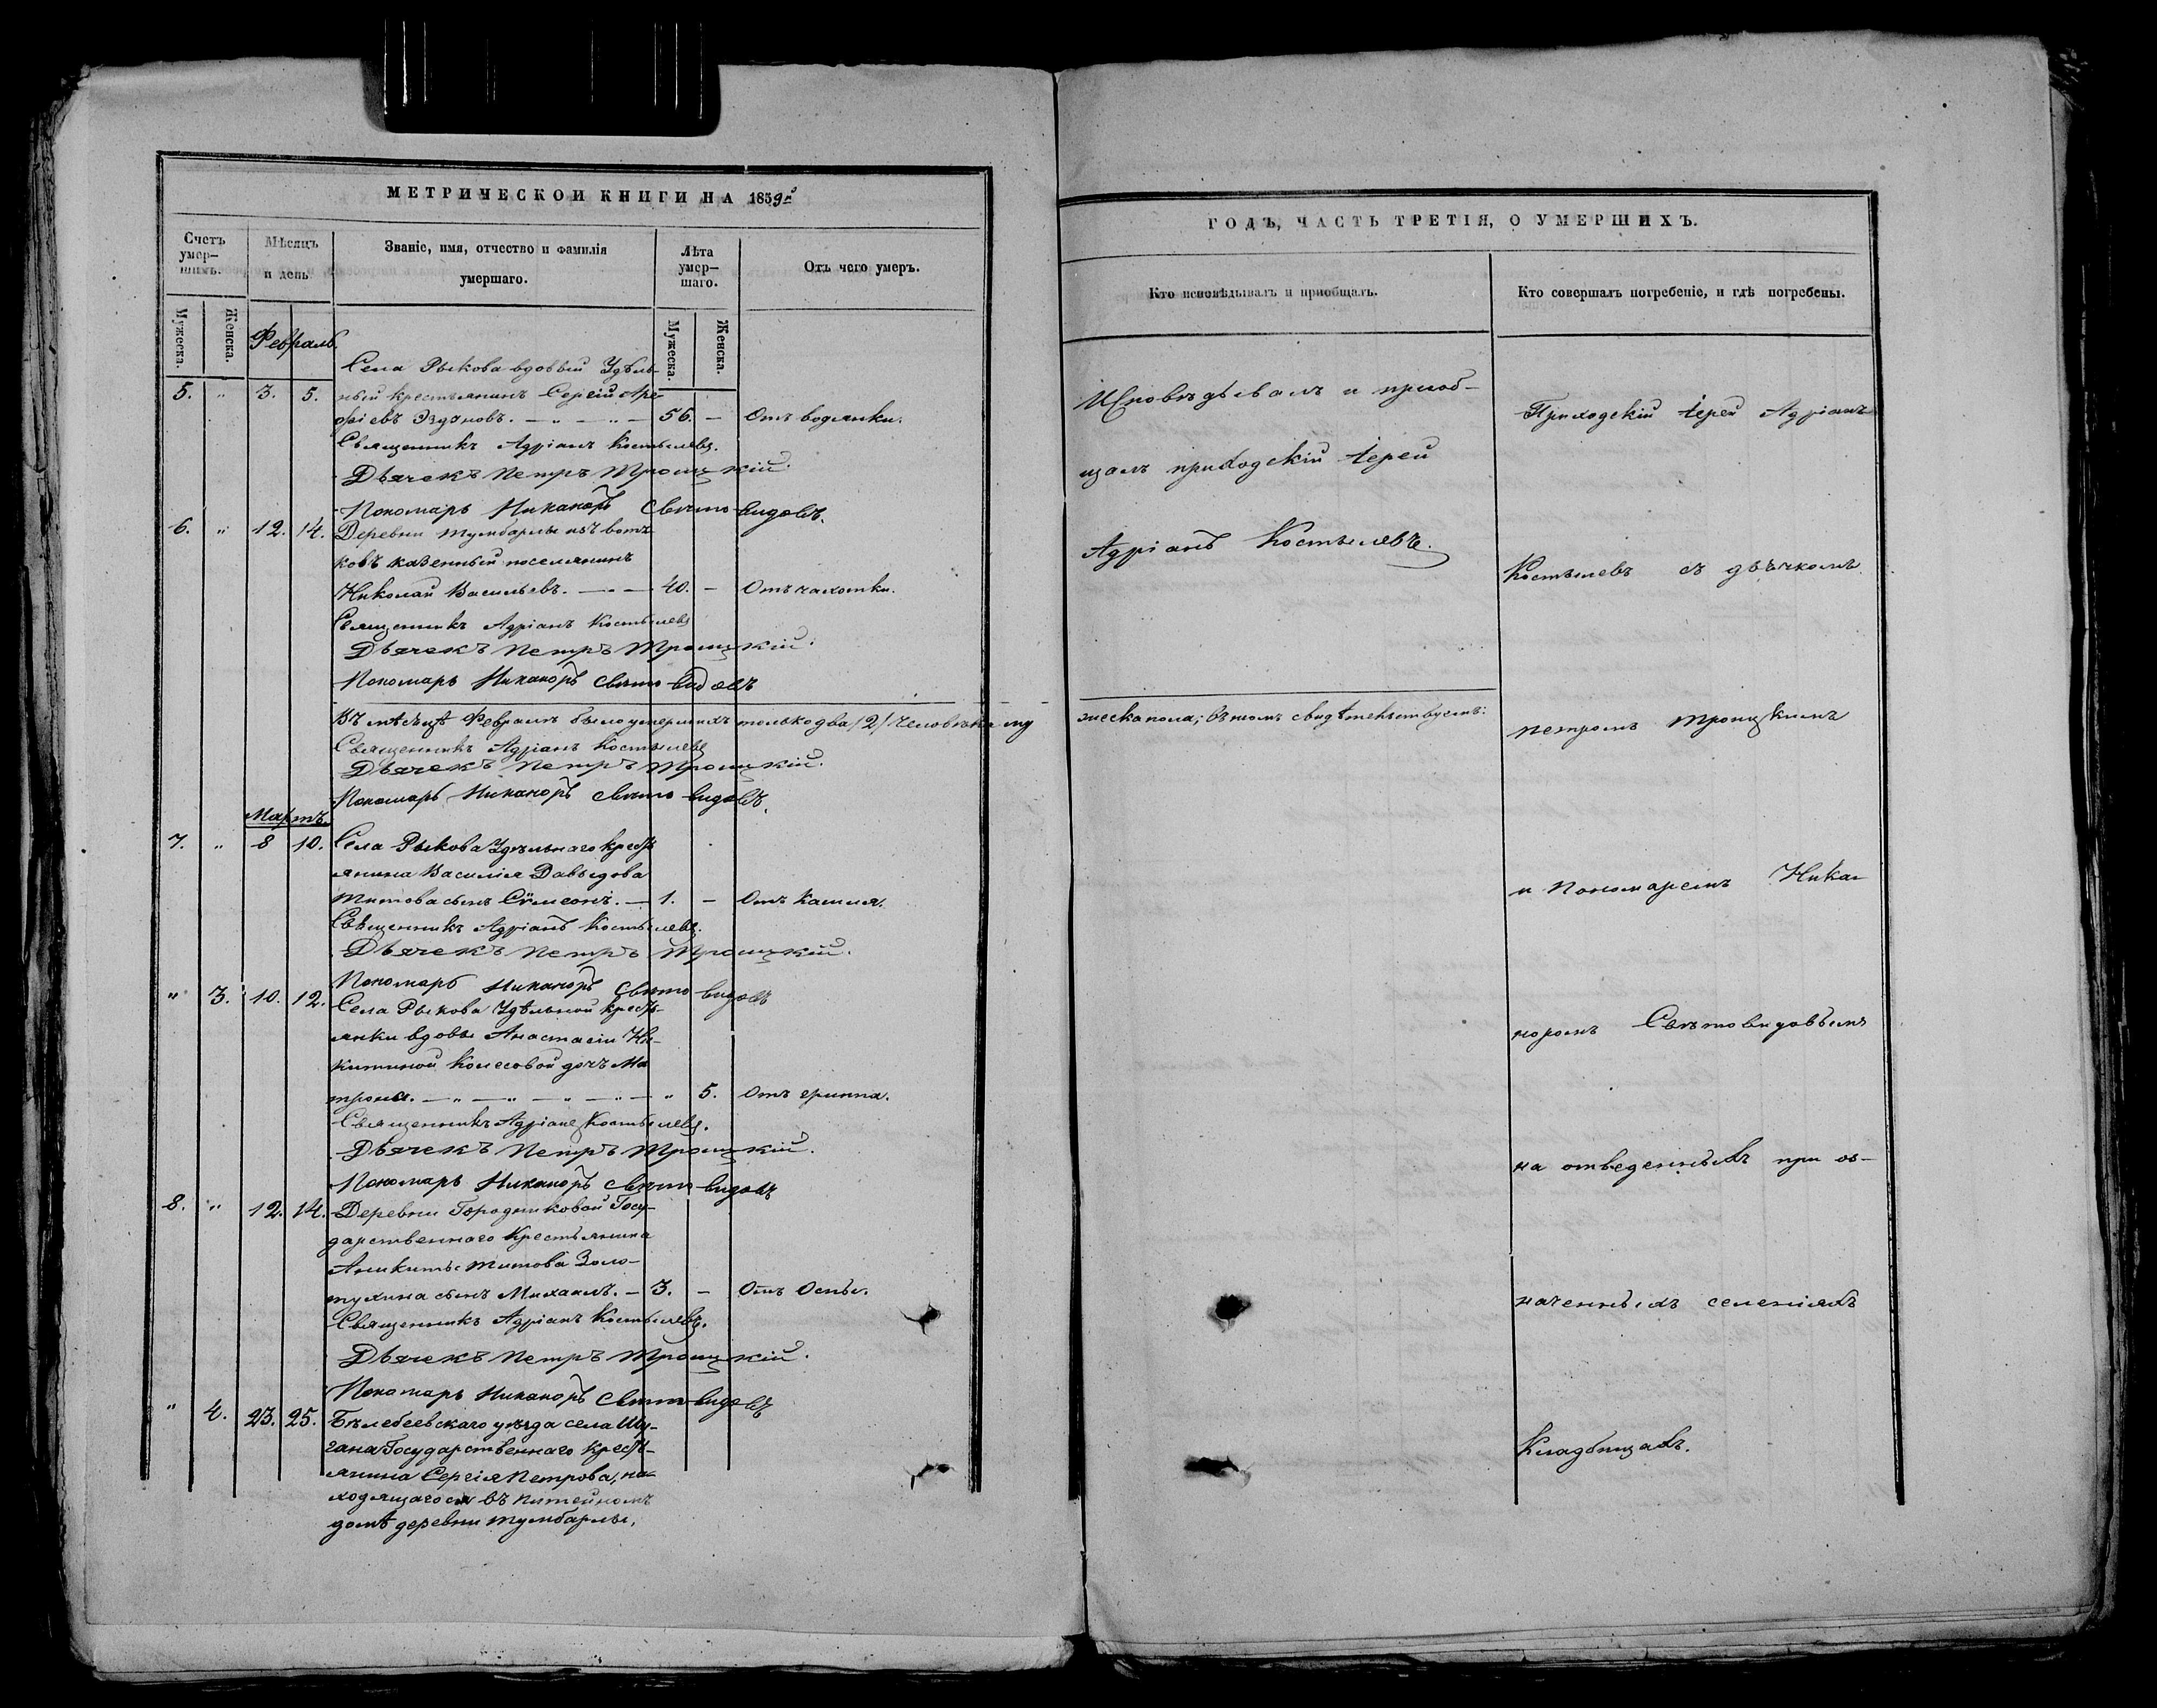 МЕТРИЧЕСКОЙ КНИГИ НА 1859й
Счетъ умер- шихъ.
Мѣсяцъ и день
Званіе, имя, отчество и фамилія умершаго.
Лѣта умер- шаго.
Отъ чего умеръ.
Мужеска.
Женска.
Мужеска.
Женска.
Февраль.
Села Рыкова вдовый Удѣль-
5. " 3. 5. ный крестьянинъ Сергій Аре-
фіевъ 56. — Отъ водянки.
Священникъ Адріанъ Костылевъ.
Дьячекъ Петръ Троицкій.
Пономарь Никаноръ Свѣтовидовъ.
6. " 12. 14. Деревни Тумбарлы изъ вотя-
ковъ казенный поселянинъ
Николай Васильевъ. — 40. — Отъ чахотки.
Священникъ Адріанъ Костылевъ
Дьячекъ Петръ Троицкій.
Пономарь Никаноръ Свѣтовидовъ
Въ мѣсяцѣ Февралѣ было умершихъ только два /2/ человѣка му
Священникъ Адріанъ Костылевъ
Дьячекъ Петръ Троицкій.
Пономарь Никаноръ Свѣтовидовъ.
Мартъ.
7. " 8 10. Села Рыкова Удѣльнаго крест-
янина Василія Давыдова
Титова сынъ Сѷмеонъ. — 1. — Отъ Кашля.
Священникъ Адріанъ Костылевъ.
Дьячекъ Петръ Троицкій.
Пономарь Никаноръ Свѣтовидовъ
" 3. 10. 12. Села Рыкова Удѣльной крест-
янки вдовы Анастасіи Ни-
китиной Колесовой дочь Ма
трона. — " — " — " — " — " 5. Отъ гриппа.
Священникъ Адріанъ Костылевъ.
Дьячекъ Петръ Троицкій.
Пономарь Никаноръ Свѣтовидовъ
8. " 12. 14. Деревни Государственнаго Крестьянина
Аникиты Титова Золо-
тухина сынъ Михаилъ. — 3. — Отъ Оспы.
Священникъ Адріанъ Костылевъ.
Дьячекъ Петръ Троицкій.
Пономарь Никаноръ Свѣтовидовъ
" 4. 23. 25. Бѣлебеевскаго уѣзда села Шу-
гана Государственнаго крест-
янина Сергія Петрова, на-
ходящагося въ питейномъ
домѣ деревни Тумбарлы,
ГОДЪ, ЧАСТЬ ТРЕТІЯ, О УМЕРШИХЪ.
Кто исповѣдывалъ и приобщалъ.
Кто совершалъ погребеніе, и гдѣ погребены.
Исповѣдывалъ и приоб-
щалъ приходскій Іерей
Адріанъ Костылевъ.
жеска пола; въ томъ свидѣтельствуемъ:
Приходскій Іерей Адріанъ
Костылевъ съ дьячкомъ
Петромъ Троицкимъ
и Пономаремъ Ника-
норомъ Свѣтовидовымъ
на отведенныхъ при оз-
наченныхъ селеніяхъ
Кладбищахъ.